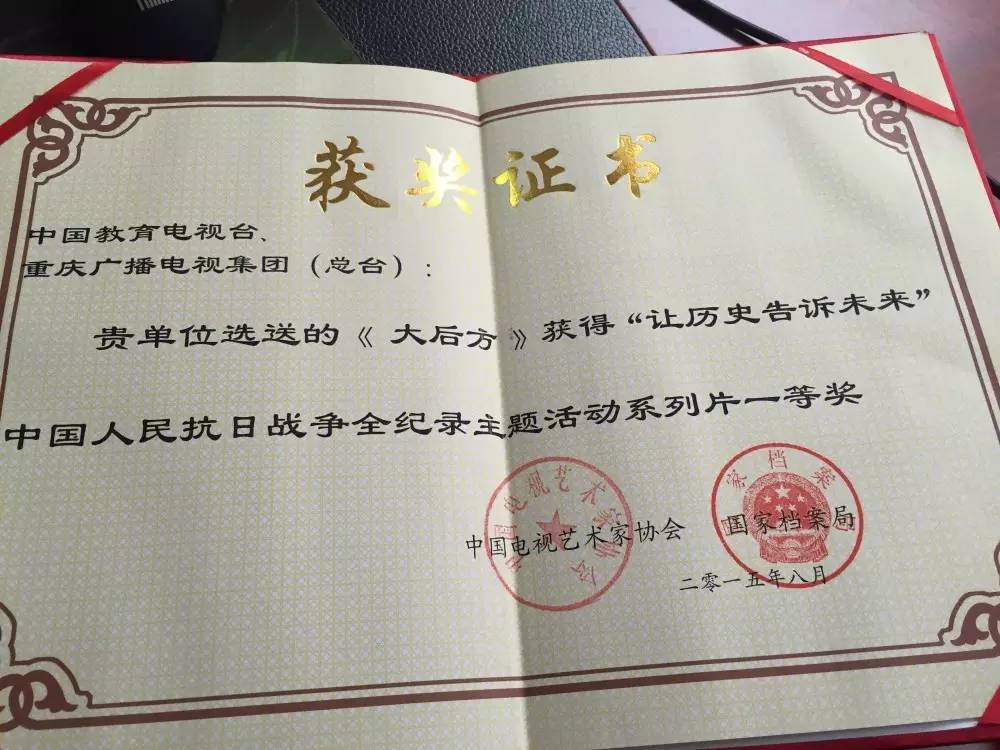 获奖证书
中国教育电视台、
重庆广播电视集团（总台）：
贵单位选送的《 大后方 》获得“让历史告诉未来”
中国人民抗日战争全纪录主题活动系列片一等奖
中国电视艺术家协会
国家档案局
中国电视艺术家协会 国家档案局
二零一五年八月